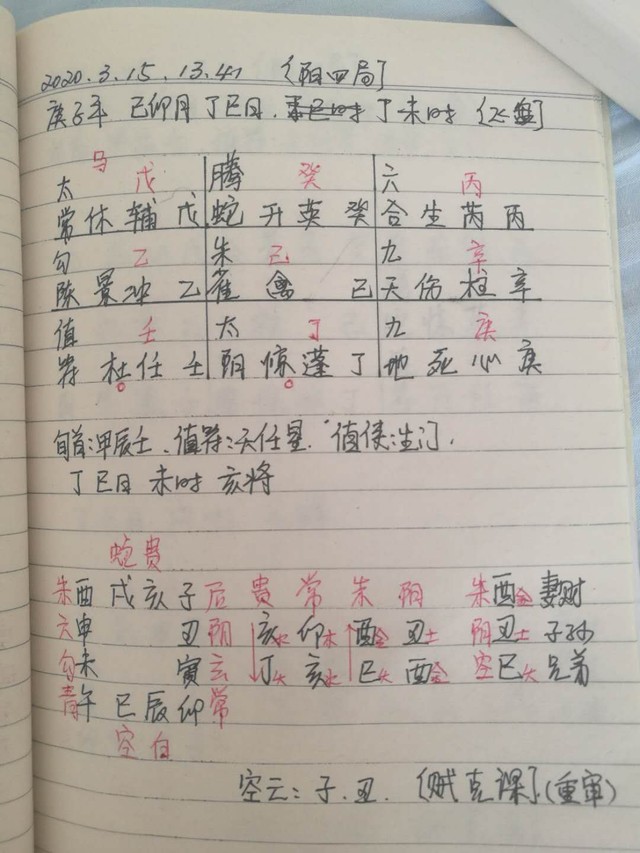 2020.3.15.13.41 〔阳四局〕
庚子年 己卯月 丁巳日. 丁未时 〔飞盘〕
太 马 戊 腾 癸 六 丙
常 休 辅 戊 蛇 开 英 癸 合 生 芮 丙
勾 乙 朱 己 九 辛
陈 景 冲 乙 雀 禽 己 天 伤 柱 辛
值 壬 太 丁 九 庚
符 杜 任 壬 阴 惊 蓬 丁 地 死 心 庚
旬首:甲辰壬、值符:天任星. 值使:生门.
丁巳日 未时 亥将
蛇 贵
朱 酉 戌 亥 子 后 贵 常 朱 阴 朱 酉金 妻财
六 申 丑 阴 亥水 卯木 酉金 丑土 阴 丑土 子孙
勾 未 寅 玄 丁火 亥水 巳火 酉金 空 巳火 兄弟
青 午 巳 辰 卯 常
空 白
空亡: 子. 丑. 〔贼克课〕(重审)